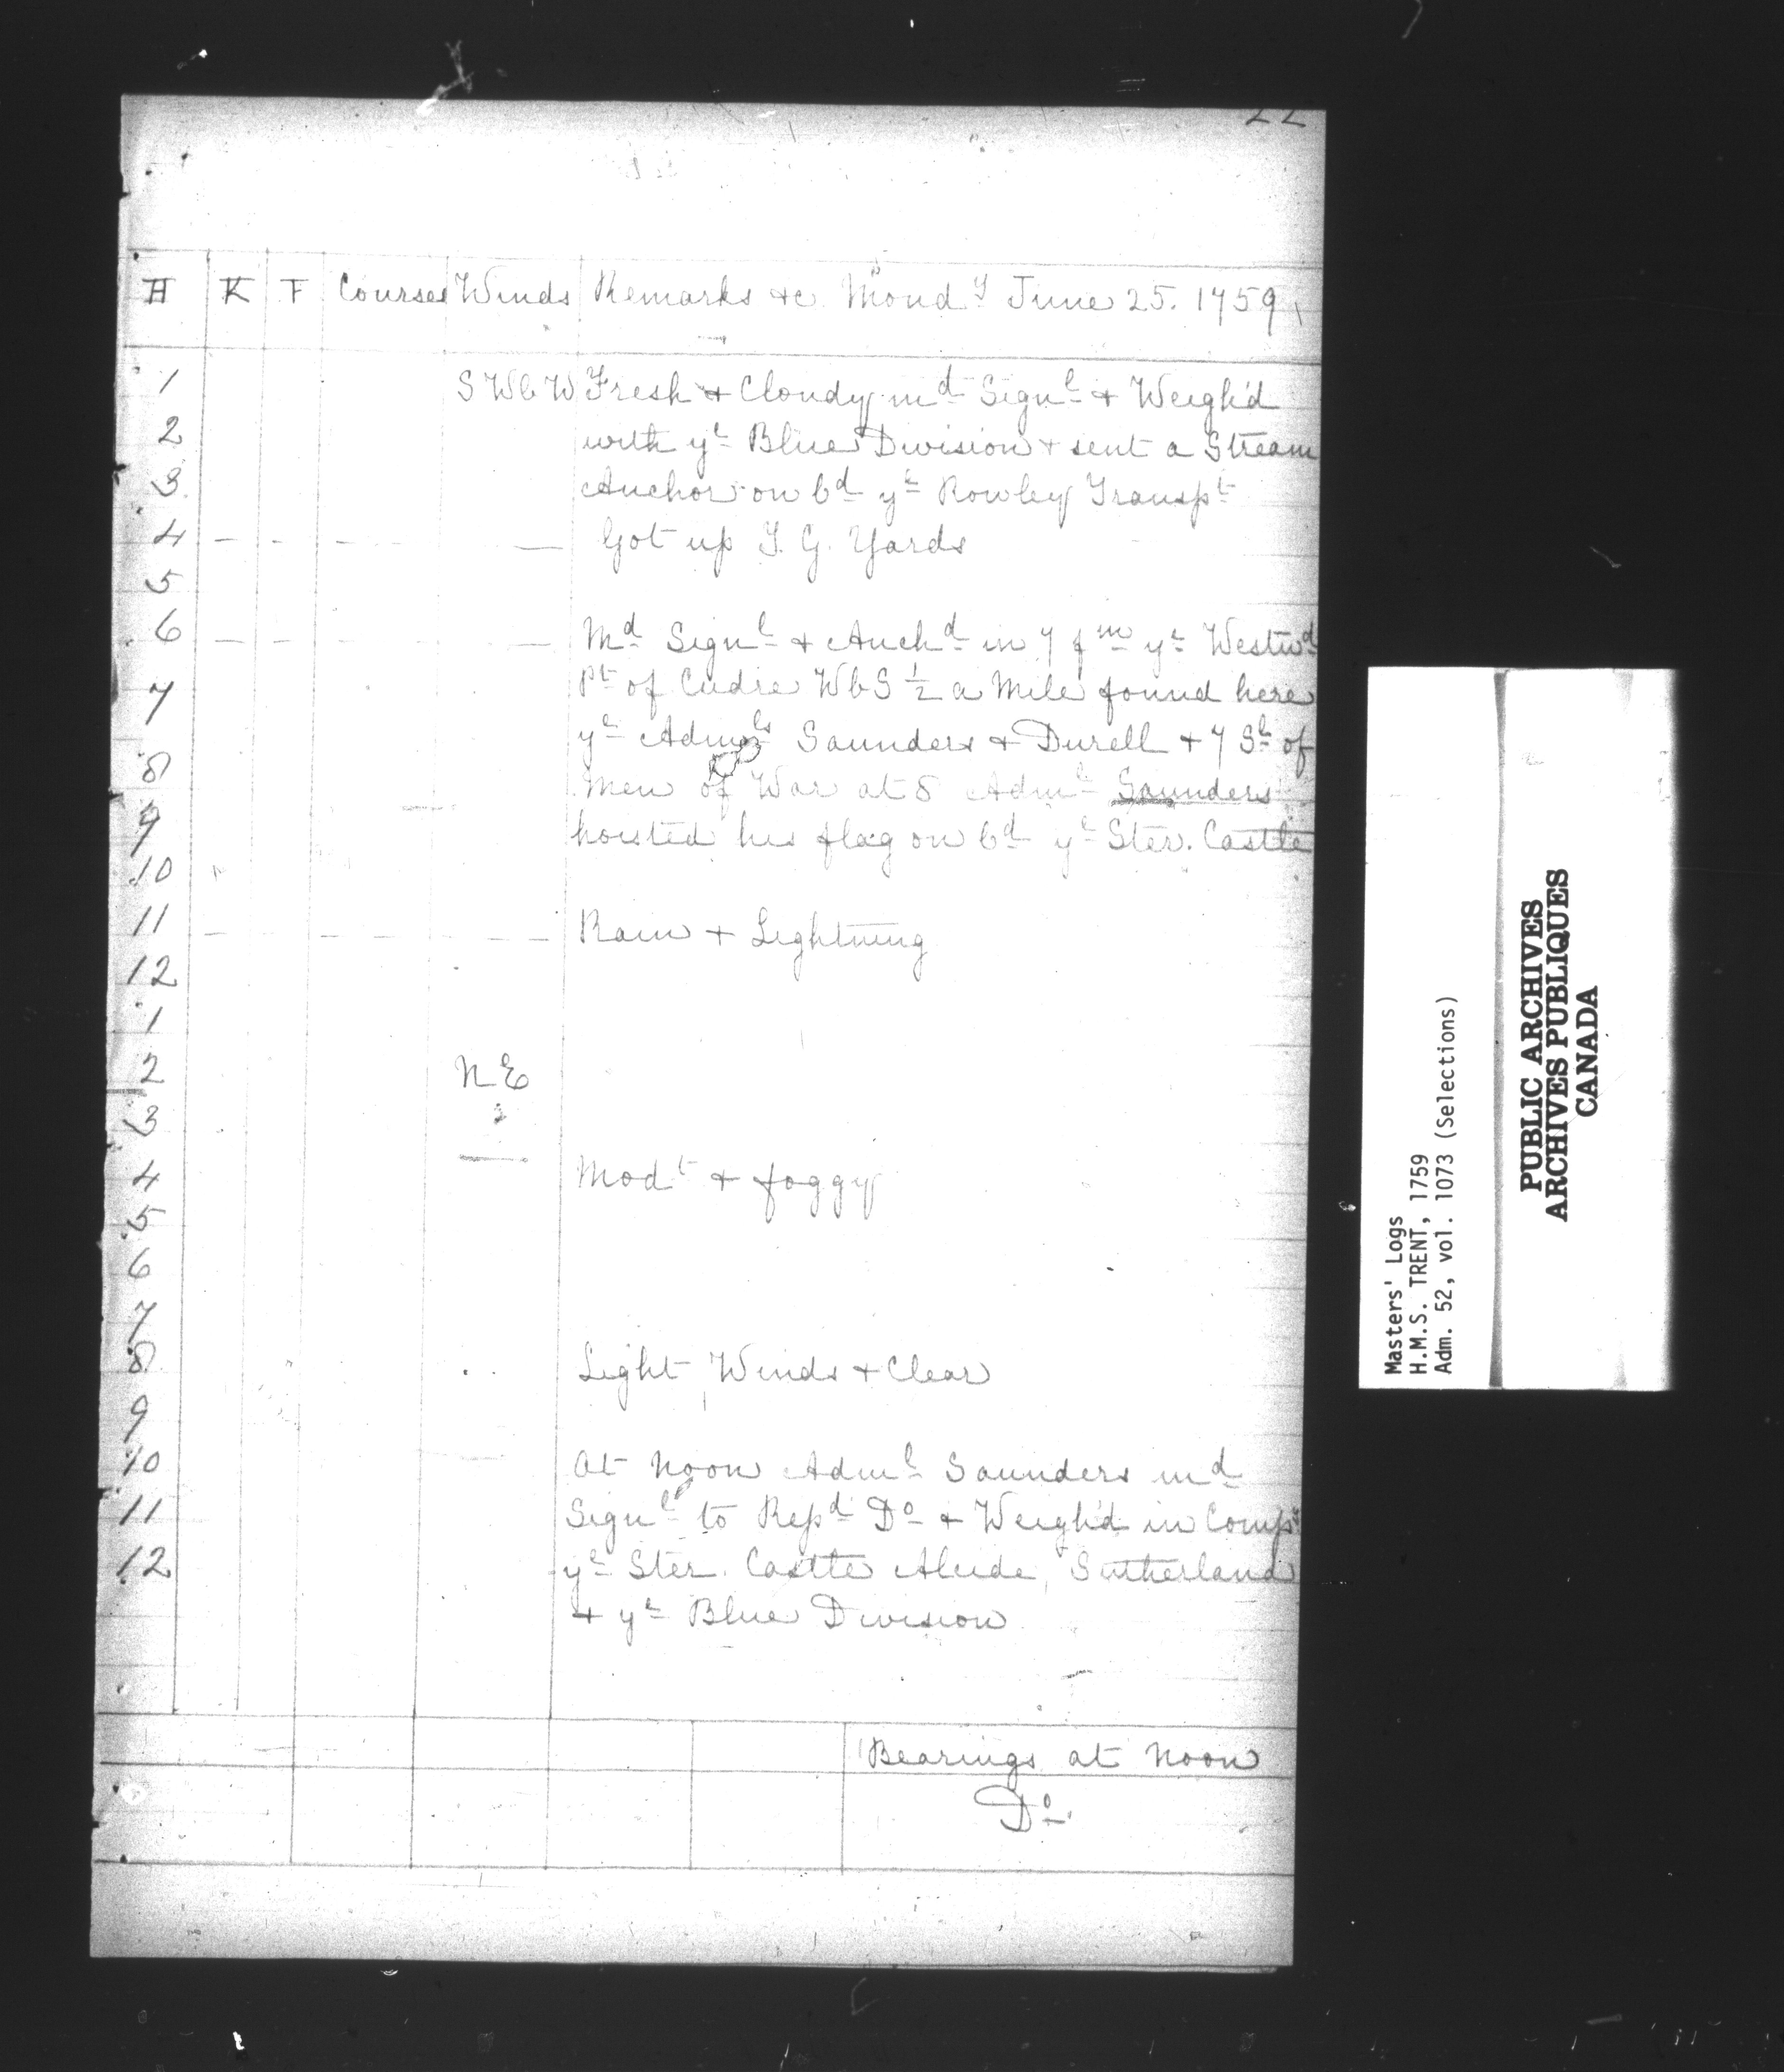 22
H K F Courses Winds Remarks &c. Mond y June 25. 1759
1 S W b W Fresh & Cloudy md Signl & Weigh'd
2 with ye Blue Division & sent a Stream
3 Anchor on bd ye Rowley Transpt
4 — — — — Got up T. G. Yards
5
6 — — — — Md Signl & Anchd in 7 fm ye Westwd
Pt of Cudre WbS ½ a Mile found here
7 ye Admls Saunders & Durell & 7 Sl of
8 Men of War at 8 Adml Saunders
9 hoisted his flag on bd ye Ster. Castle
10
11 — — — — Rain & Lightning
12
1
2 N E
3
4 Modt & foggy
5
6
7
8 Light Winds & Clear
9
10 At Noon Adml Saunders md
11 Signl to Repd Do & Weigh'd in Comp
12 ye Ster. Castle Alcide, Sutherland
& ye Blue Division
Bearings at Noon
Do
Masters' Logs
H.M.S. TRENT, 1759
Adm. 52, vol. 1073 (Selections)
PUBLIC ARCHIVES
ARCHIVES PUBLIQUES
CANADA